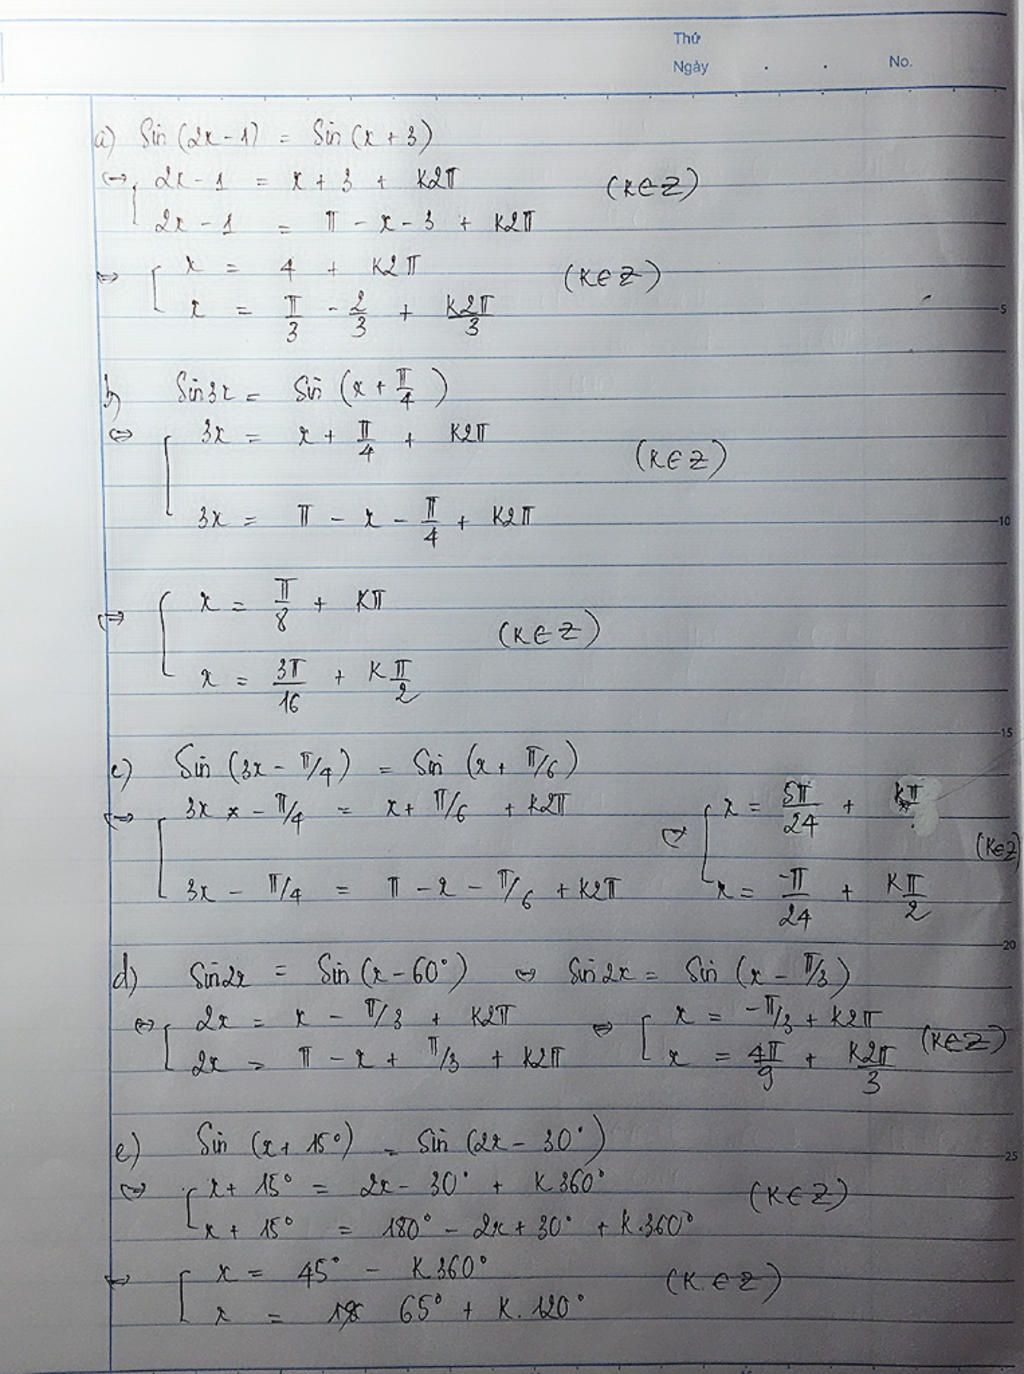 Thứ
Ngày . . No.
a) Sin (2x - 1) = Sin (x + 3)
⇔ 2x - 1 = x + 3 + k2π (k∈Z)
2x - 1 = π - x - 3 + k2π
⇔ x = 4 + k2π (k∈Z)
x = π/3 - 2/3 + k2π/3
5
b) Sin3x = Sin (x + π/4)
⇔ 3x = x + π/4 + k2π
(k∈Z)
3x = π - x - π/4 + k2π
10
⇔ x = π/8 + kπ
(k∈Z)
x = 3π/16 + k π/2
15
c) Sin (3x - π/4) = Sin (x + π/6)
⇔ 3x - π/4 = x + π/6 + k2π ⇔ x = 5π/24 + kπ
(k∈Z)
3x - π/4 = π - x - π/6 + k2π x = -π/24 + kπ/2
20
d) Sin2x = Sin (x - 60°) ⇔ Sin 2x = Sin (x - π/3)
⇔ 2x = x - π/3 + k2π ⇔ x = -π/3 + k2π (k∈Z)
2x = π - x + π/3 + k2π x = 4π/9 + k2π/3
e) Sin (x + 15°) = Sin (2x - 30°)
25
⇔ x + 15° = 2x - 30° + k360° (k∈Z)
x + 15° = 180° - 2x + 30° + k.360°
⇔ x = 45° - k360° (k∈Z)
x = 65° + k.120°